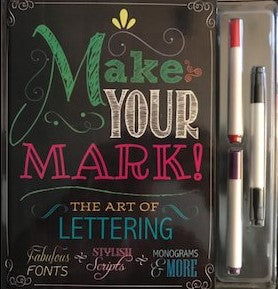 Make
YOUR
MARK!
THE ART OF
LETTERING
Fabulous FONTS
STYLISH Scripts
MONOGRAMS & MORE